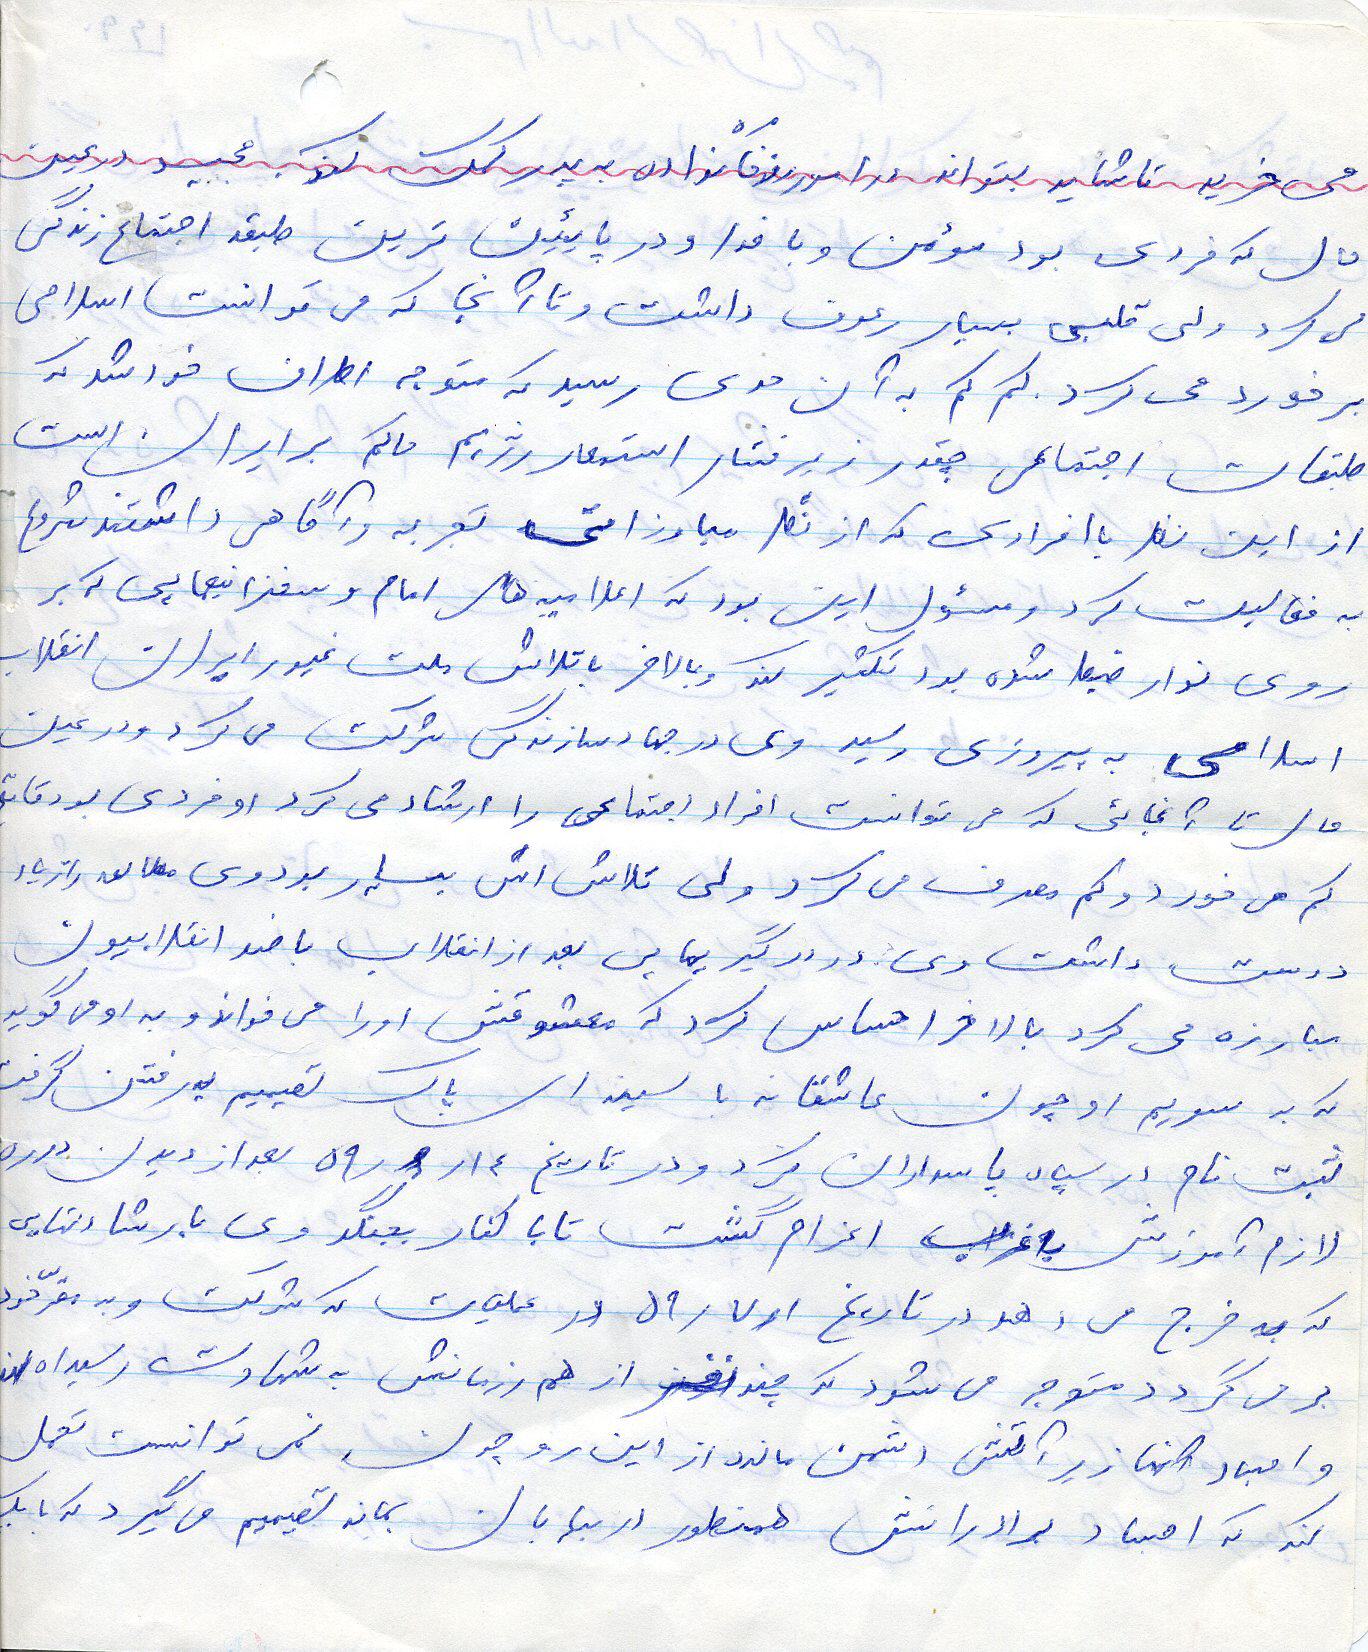 می خرید تا شاید بتواند در امور خانواده به پدر کمک کند. مجید در عین
حال که فردی بود مؤمن و با خدا و در پایئین ترین طبقه اجتماع زندگی
می کرد ولی قلبی بسیار رعوف داشت و تا آنجا که می توانست اسلامی
برخورد می کرد. کم کم به آن حدی رسید که متوجه اطراف خود شد که
طبقات اجتماعی چقدر زیر فشار استعمار رژیم حاکم بر ایران است
از این نظر با افرادی که از نظر مبارزاتی تجربه و آگاهی داشتند شروع
به فعالیت کرد و مسئول این بود که اعلامیه های امام و سخنرانیهایی که بر
روی نوار ضبط شده بود تکثیر کند و بالاخر با تلاش ملت غیور ایران انقلاب
اسلامی به پیروزی رسید وی در جهاد سازندگی شرکت می کرد و در عین
حال تا آنجائی که می توانست افراد اجتماعی را ارشاد می کرد او فردی بود قانع
کم می خورد و کم مصرف می کرد ولی تلاش اش بسیار بود وی مطالعه را زیاد
دوست داشت وی در درگیریهایی بعد از انقلاب با ضد انقلابیون
مبارزه می کرد بالاخر احساس کرد که معشوقش او را می خواند و به او می گوید
که به سویم او چون عاشقانه با سینه ای پاک تصمیم به رفتن گرفت
ثبت نام در سپاه پاسداران کرد و در تاریخ ۱۴ر ر۵۹ بعد از دیدن دوره
لازم آموزش اعزام گشت تا با کفار بجنگد وی با رشادتهایی
که به خرج می دهد در تاریخ ر۷ر۵۹ در عملیات که شرکت و به مقر خود
بر می گردد متوجه می شود که چند نفر از هم رزمانش به شهادت رسیده اند
و اجساد آنها زیر آتش دشمن مانده از این رو چون نمی توانست تحمل
کند که اجساد برادرانش همنطور در بیابان بماند تصمیم می گیرد که با یک